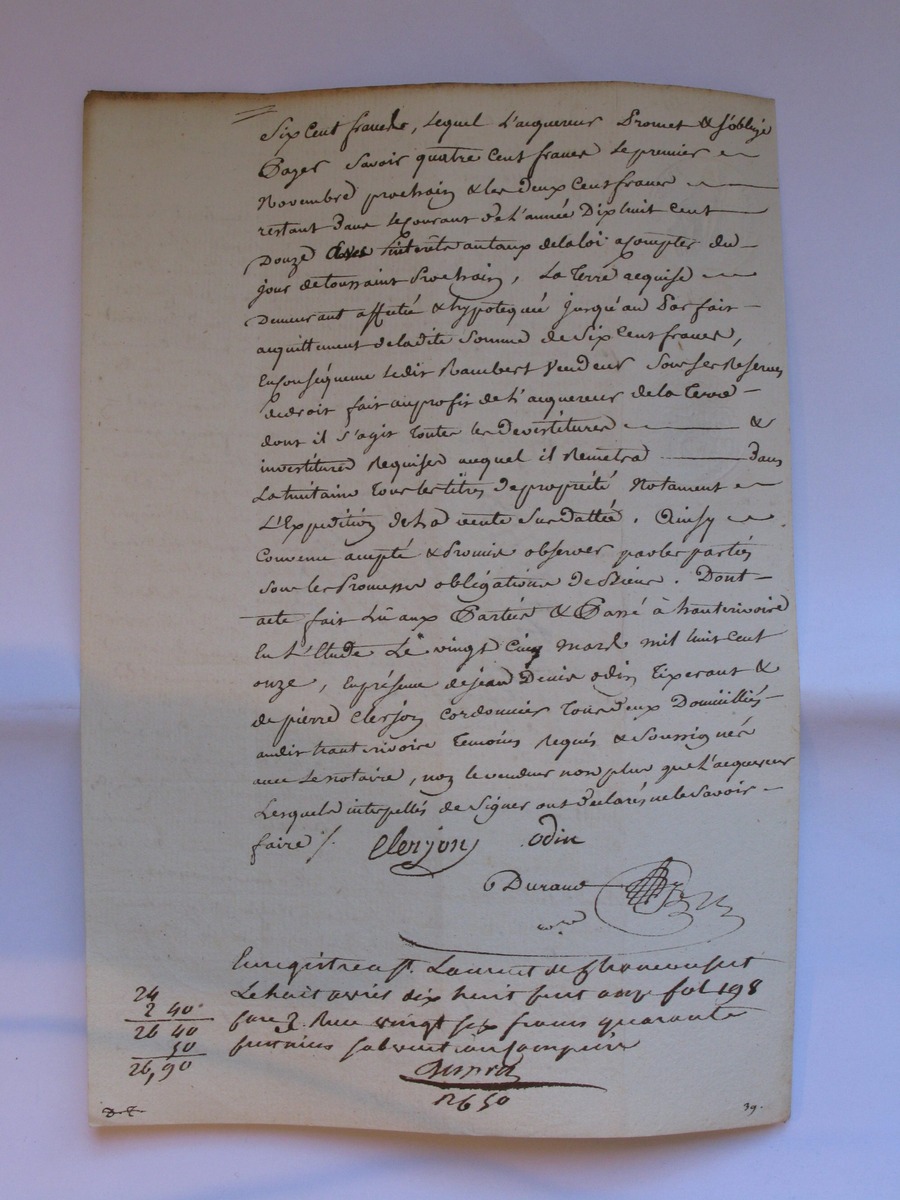 Six Cent francs, lequel L'acquereur Promet & s'oblige
Payer Savoir quatre Cent francs le premier
Novembre prochain & les deux Cent francs
restant dans le Courant de L'année Dix huit Cent
Douze avec Interêts au taux de la loi a compter du
jour de toussaint Prochain, La Terre acquise
Demeurant affectée & hypotequée jusqu'au Parfait
acquittement de ladite Somme de Six Cent francs,
En Conséquence Ledit Rambert Vendeur Sous ses Reserves
de droit fait au profit de L'acquereur de la Terre
dont il s'agit Toutes les Devestitures &
investitures Requises auquel il Remetra Dans
La huitaine Tous les titres de propriété Notament
L'Expedition de la vente Sus Dattée. Ainsy
Convenu accepté & Promis observer par les parties
Sous les Promesses obligations de Biens. Dont
acte fait Lû aux Parties & Passé à hauterivoire
En L'Etude Le vingt Cinq mars mil huit Cent
onze, En présence de jean Denis odin Tixerant &
de pierre Clerjon Cordonnier Tous deux Domiciliés
audit hauterivoire Temoins Requis & Soussignés
avec Le notaire, non le vendeur non plus que L'acquereur
Lesquels interpellés de Signer ont Declarés ne le Savoir
faire /.
Clerjon odin
Durand
nre
Enregistré a St. Laurent de Chamousset
Le huit avril dix huit cent onze fol 198
Case 3. Reçu vingt six francs quarante
centimes subvention comprise
24
2 40
26 40
50
26,90
2650
39.